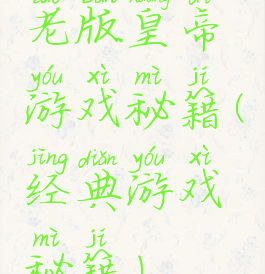 lǎo bǎn huáng dì
老版皇帝
yóu xì mì jí
游戏秘籍(
jīng diǎn yóu xì
经典游戏
mì jí
秘籍)